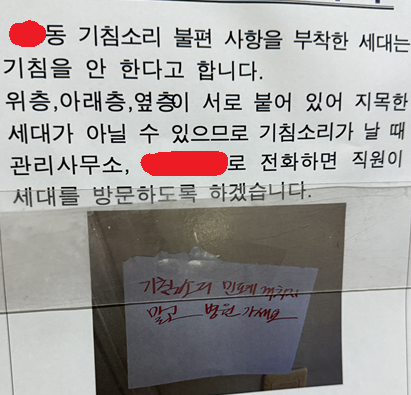 동 기침소리 불편 사항을 부착한 세대는
기침을 안 한다고 합니다.
위층,아래층,옆층이 서로 붙어 있어 지목한
세대가 아닐 수 있으므로 기침소리가 날 때
관리사무소, 로 전화하면 직원이
세대를 방문하도록 하겠습니다.
기침소리 민폐 끼치지
말고 병원 가세요